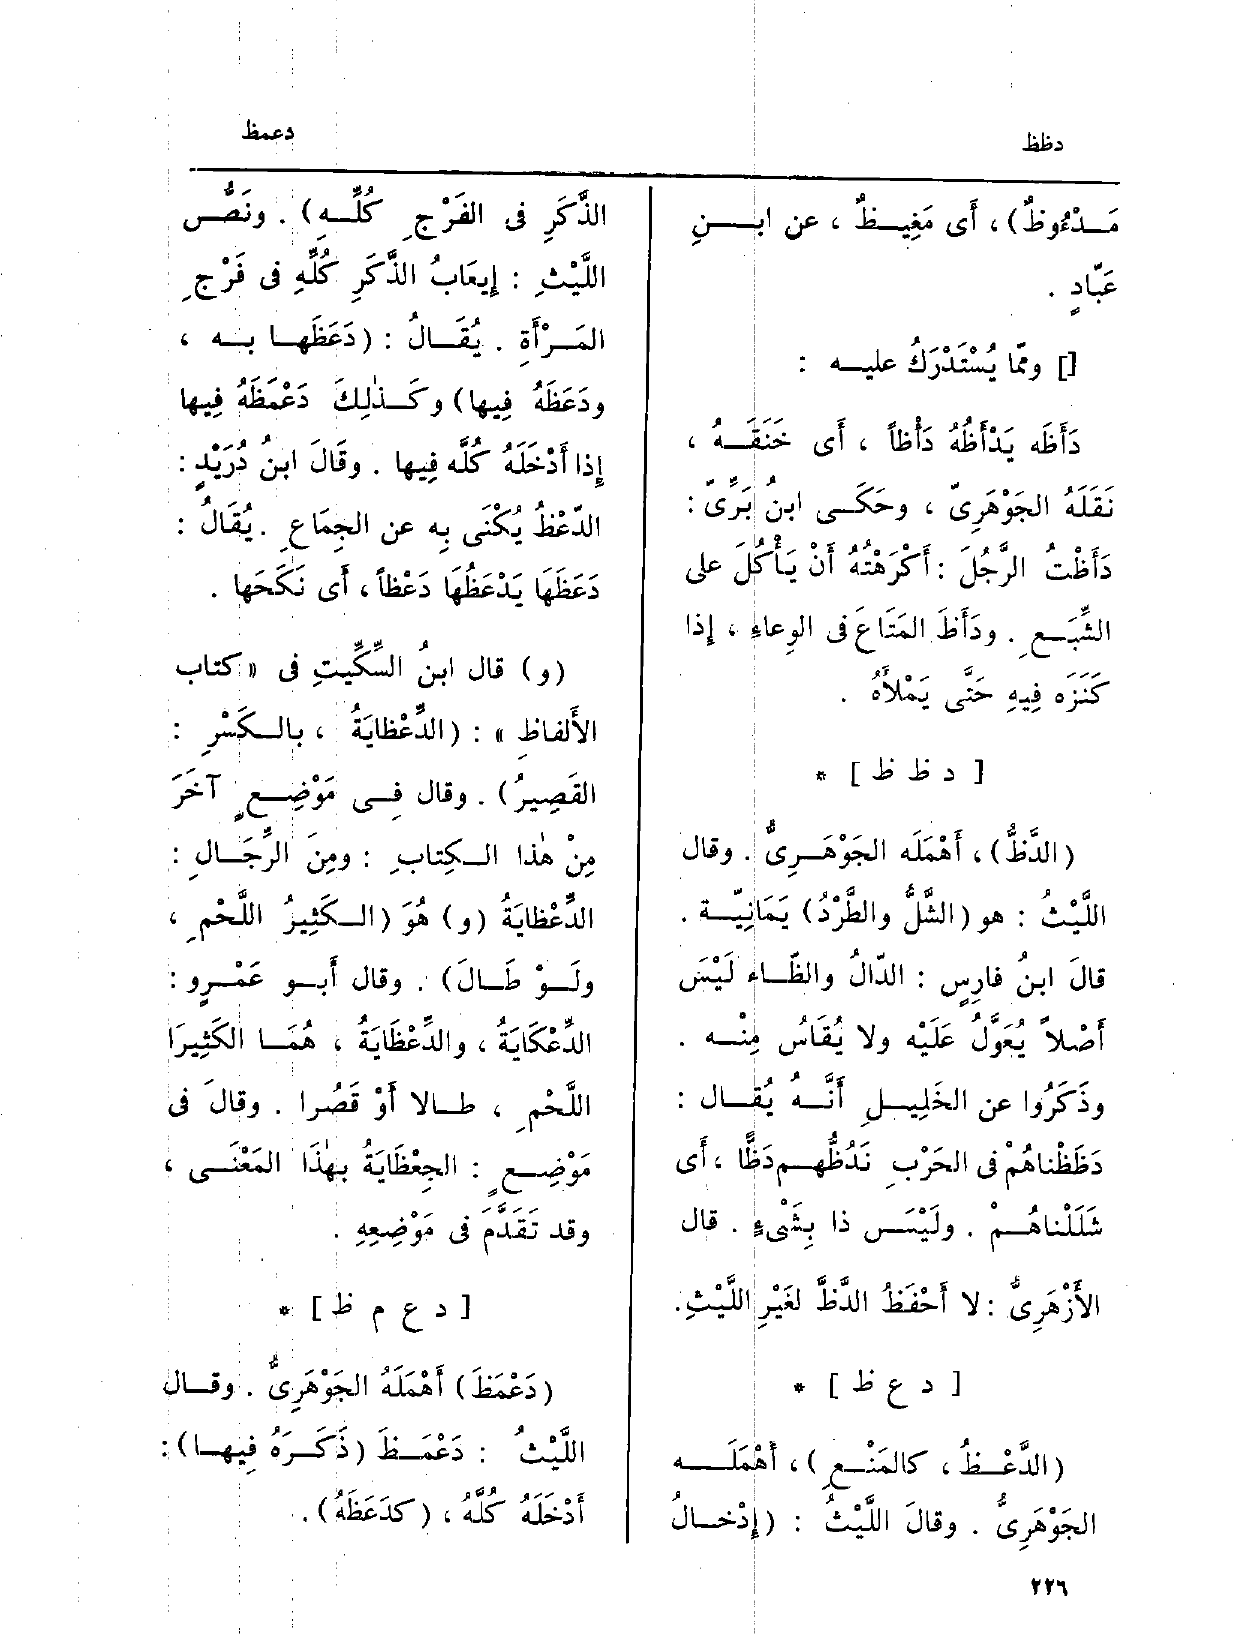 دظظ
دعمظ
مَـدْءُوظٌ) ، أَى مَغِيـظٌ ، عن ابـنِ
عَبّادٍ .
[] ومّا يُسْتَدْرَكُ عليـه :
دَأَظَه يَدْأَظُهُ دَأْظاً ، أَى خَنَقَـهُ ،
نَقَلَهُ الجَوْهَرِىّ ، وحَكَـى ابنُ بَرِّىّ :
دَأَظْتُ الرَّجُلَ : أَكْرَهْتُهُ أَنْ يَأْكُلَ على
الشِّبَـعِ . ودَأَظَ المَتَاعَ فى الوِعاءِ ، إِذا
كَنَزَه فِيهِ حَتَّى يَمْلأَهُ .
[ د ظ ظ ] *
(الدَّظُّ) ، أَهْمَلَه الجَوْهَـرِىُّ . وقال
اللَّيْثُ : هو (الشَّلُّ والطَّرْدُ) يَمَانِيّـة .
قالَ ابنُ فارِسٍ : الدّالُ والظّـاء لَيْسَ
أَصْلاً يُعَوَّلُ عَلَيْه ولا يُقَاسُ مِنْـه .
وذَكَرُوا عن الخَلِيـلِ أَنَّـهُ يُقَـال :
دَظَظْناهُمْ فى الحَرْبِ نَدُظُّهـم دَظًّا ، أَى
شَلَلْناهُـمْ . ولَيْـسَ ذا بِشَىْءٍ . قال
الأَزْهَرِىُّ : لا أَحْفَظُ الدَّظَّ لغَيْرِ اللَّيْثِ.
[ د ع ظ ] *
(الدَّعْـظُ ، كالمَنْـعِ ) ، أَهْمَلَــه
الجَوْهَرِىُّ . وقالَ اللَّيْثُ : (إِدْخـالُ
الذَّكَرِ فى الفَرْجِ كُلِّـهِ) . ونَصُّ
اللَّيْثِ : إِيعَابُ الذَّكَرِ كُلِّهِ فى فَرْجِ
المَـرْأَةِ . يُقَـالُ : (دَعَظَهـا بـه ،
ودَعَظَهُ فِيها) وكَـذٰلِكَ دَعْمَظَهُ فِيها
إِذا أَدْخَلَهُ كُلَّه فِيها . وقَالَ ابنُ دُرَيْدٍ :
الدَّعْظُ يُكْنَى بِه عن الجِمَاعِ . يُقَالُ :
دَعَظَهَا يَدْعَظُهَا دَعْظاً ، أَى نَكَحَها .
(و) قال ابنُ السِّكِّيتِ فى « كتاب
الأَلفاظِ » : (الدِّعْظايَةُ ، بالـكَسْرِ :
القَصِيرُ) . وقال فِـى مَوْضِـعٍ آخَرَ
مِنْ هٰذا الـكِتابِ : ومِنَ الرِّجَـالِ :
الدِّعْظايَةُ (و) هُوَ (الـكَثِيرُ اللَّحْمِ ،
ولَـوْ طَـالَ) . وقال أَبـو عَمْـرٍو :
الدِّعْكايَةُ ، والدِّعْظَايَةُ ، هُمَـا الكَثِيرَا
اللَّحْمِ ، طـالا أَوْ قَصُرا . وقالَ فى
مَوْضِـعٍ : الجِعْظَايَةُ بهٰذا المَعْنَـى ،
وقد تَقَدَّمَ فى مَوْضِعِهِ .
[ د ع م ظ ] *
(دَعْمَظَ) أَهْمَلَهُ الجَوْهَرِىُّ . وقـال
اللَّيْثُ : دَعْمَـظَ (ذَكَـرَهُ فِيهـا) :
أَدْخَلَهُ كُلَّهُ ، (كدَعَظَهُ) .
٢٢٦